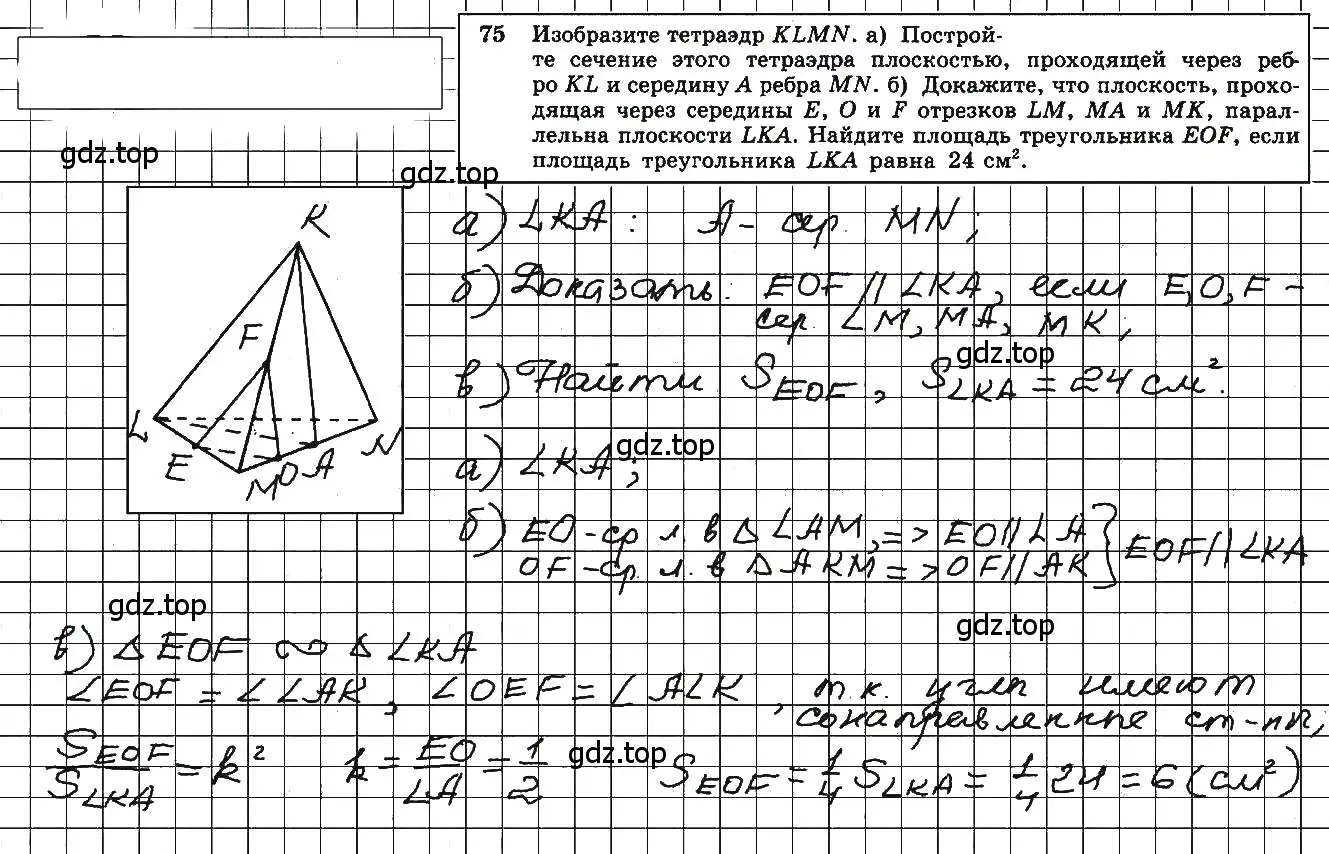 75 Изобразите тетраэдр KLMN. а) Построй-
те сечение этого тетраэдра плоскостью, проходящей через реб-
ро KL и середину A ребра MN. б) Докажите, что плоскость, прохо-
дящая через середины E, O и F отрезков LM, MA и MK, парал-
лельна плоскости LKA. Найдите площадь треугольника EOF, если
площадь треугольника LKA равна 24 см².
gdz.top
gdz.top
K
F
L
E
M
O
A
N
а) LKA : A - сер. MN;
б) Доказать: EOF || LKA, если E, O, F -
сер. LM, MA, MK;
gdz.top
в) Найти S_EOF, S_LKA = 24 см².
gdz.top
а) LKA;
б) EO - ср. л. в Δ LAM, => EO || LA } EOF || LKA
OF - ср. л. в Δ AKM => OF || AK
gdz.top
gdz.top
в) Δ EOF ∾ Δ LKA
∠EOF = ∠LAK, ∠OEF = ∠ALK, т.к. углы имеют
сонаправленные ст-ны,
gdz.top
S_EOF / S_LKA = k² k = EO / LA = 1/2 S_EOF = 1/4 S_LKA = 1/4 24 = 6 (см²)